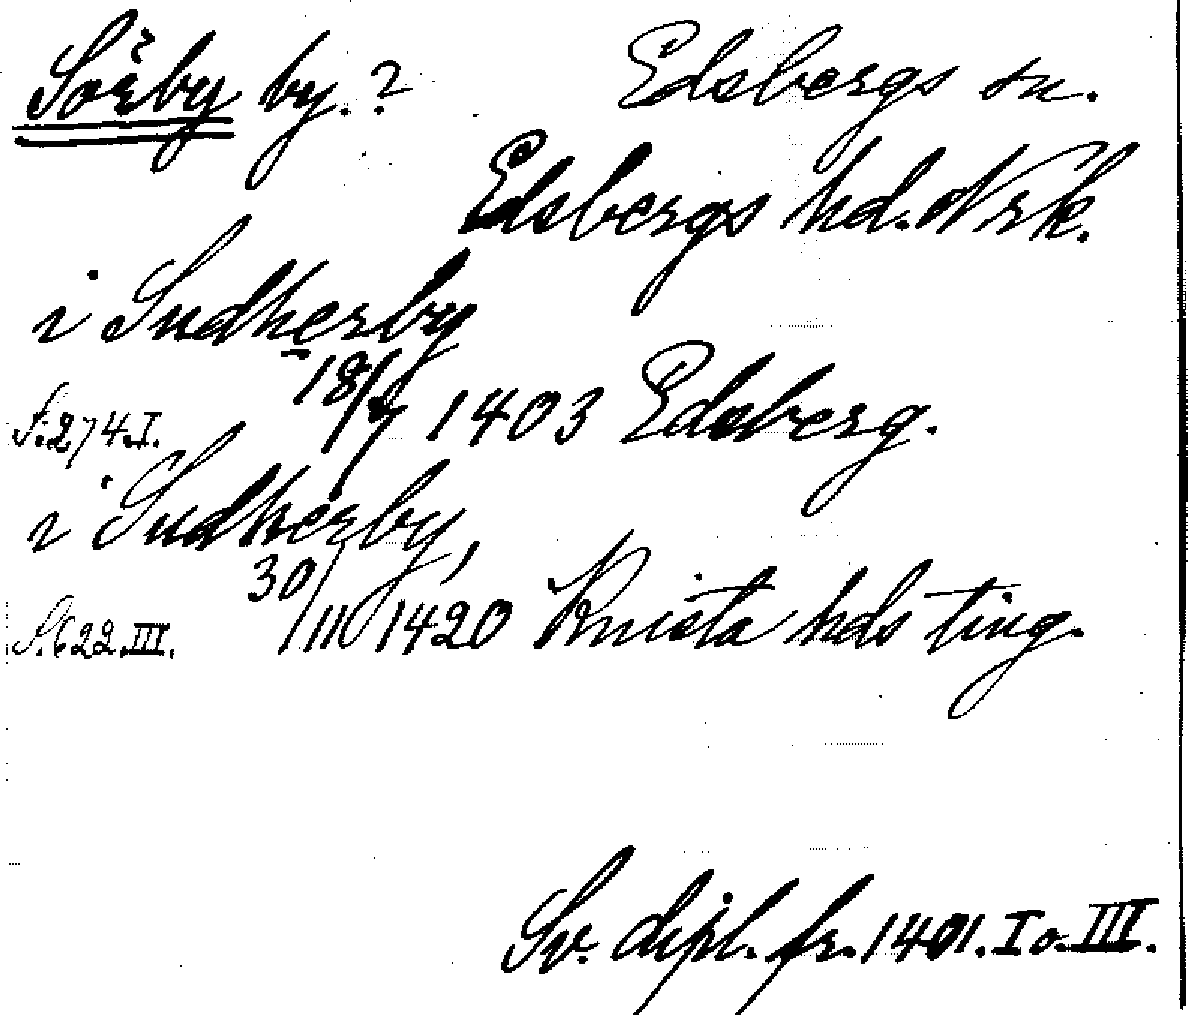 Sörby by.? Edsbergs sn.
Edsbergs hd. Nrk.
i Sudherby
S. 274. I. 18/9 1403 Edsberg.
i Sudherby,
S. 622. III. 30/III 1420 Knista hds ting.
Sv. dipl. fr. 1401. I o. III.